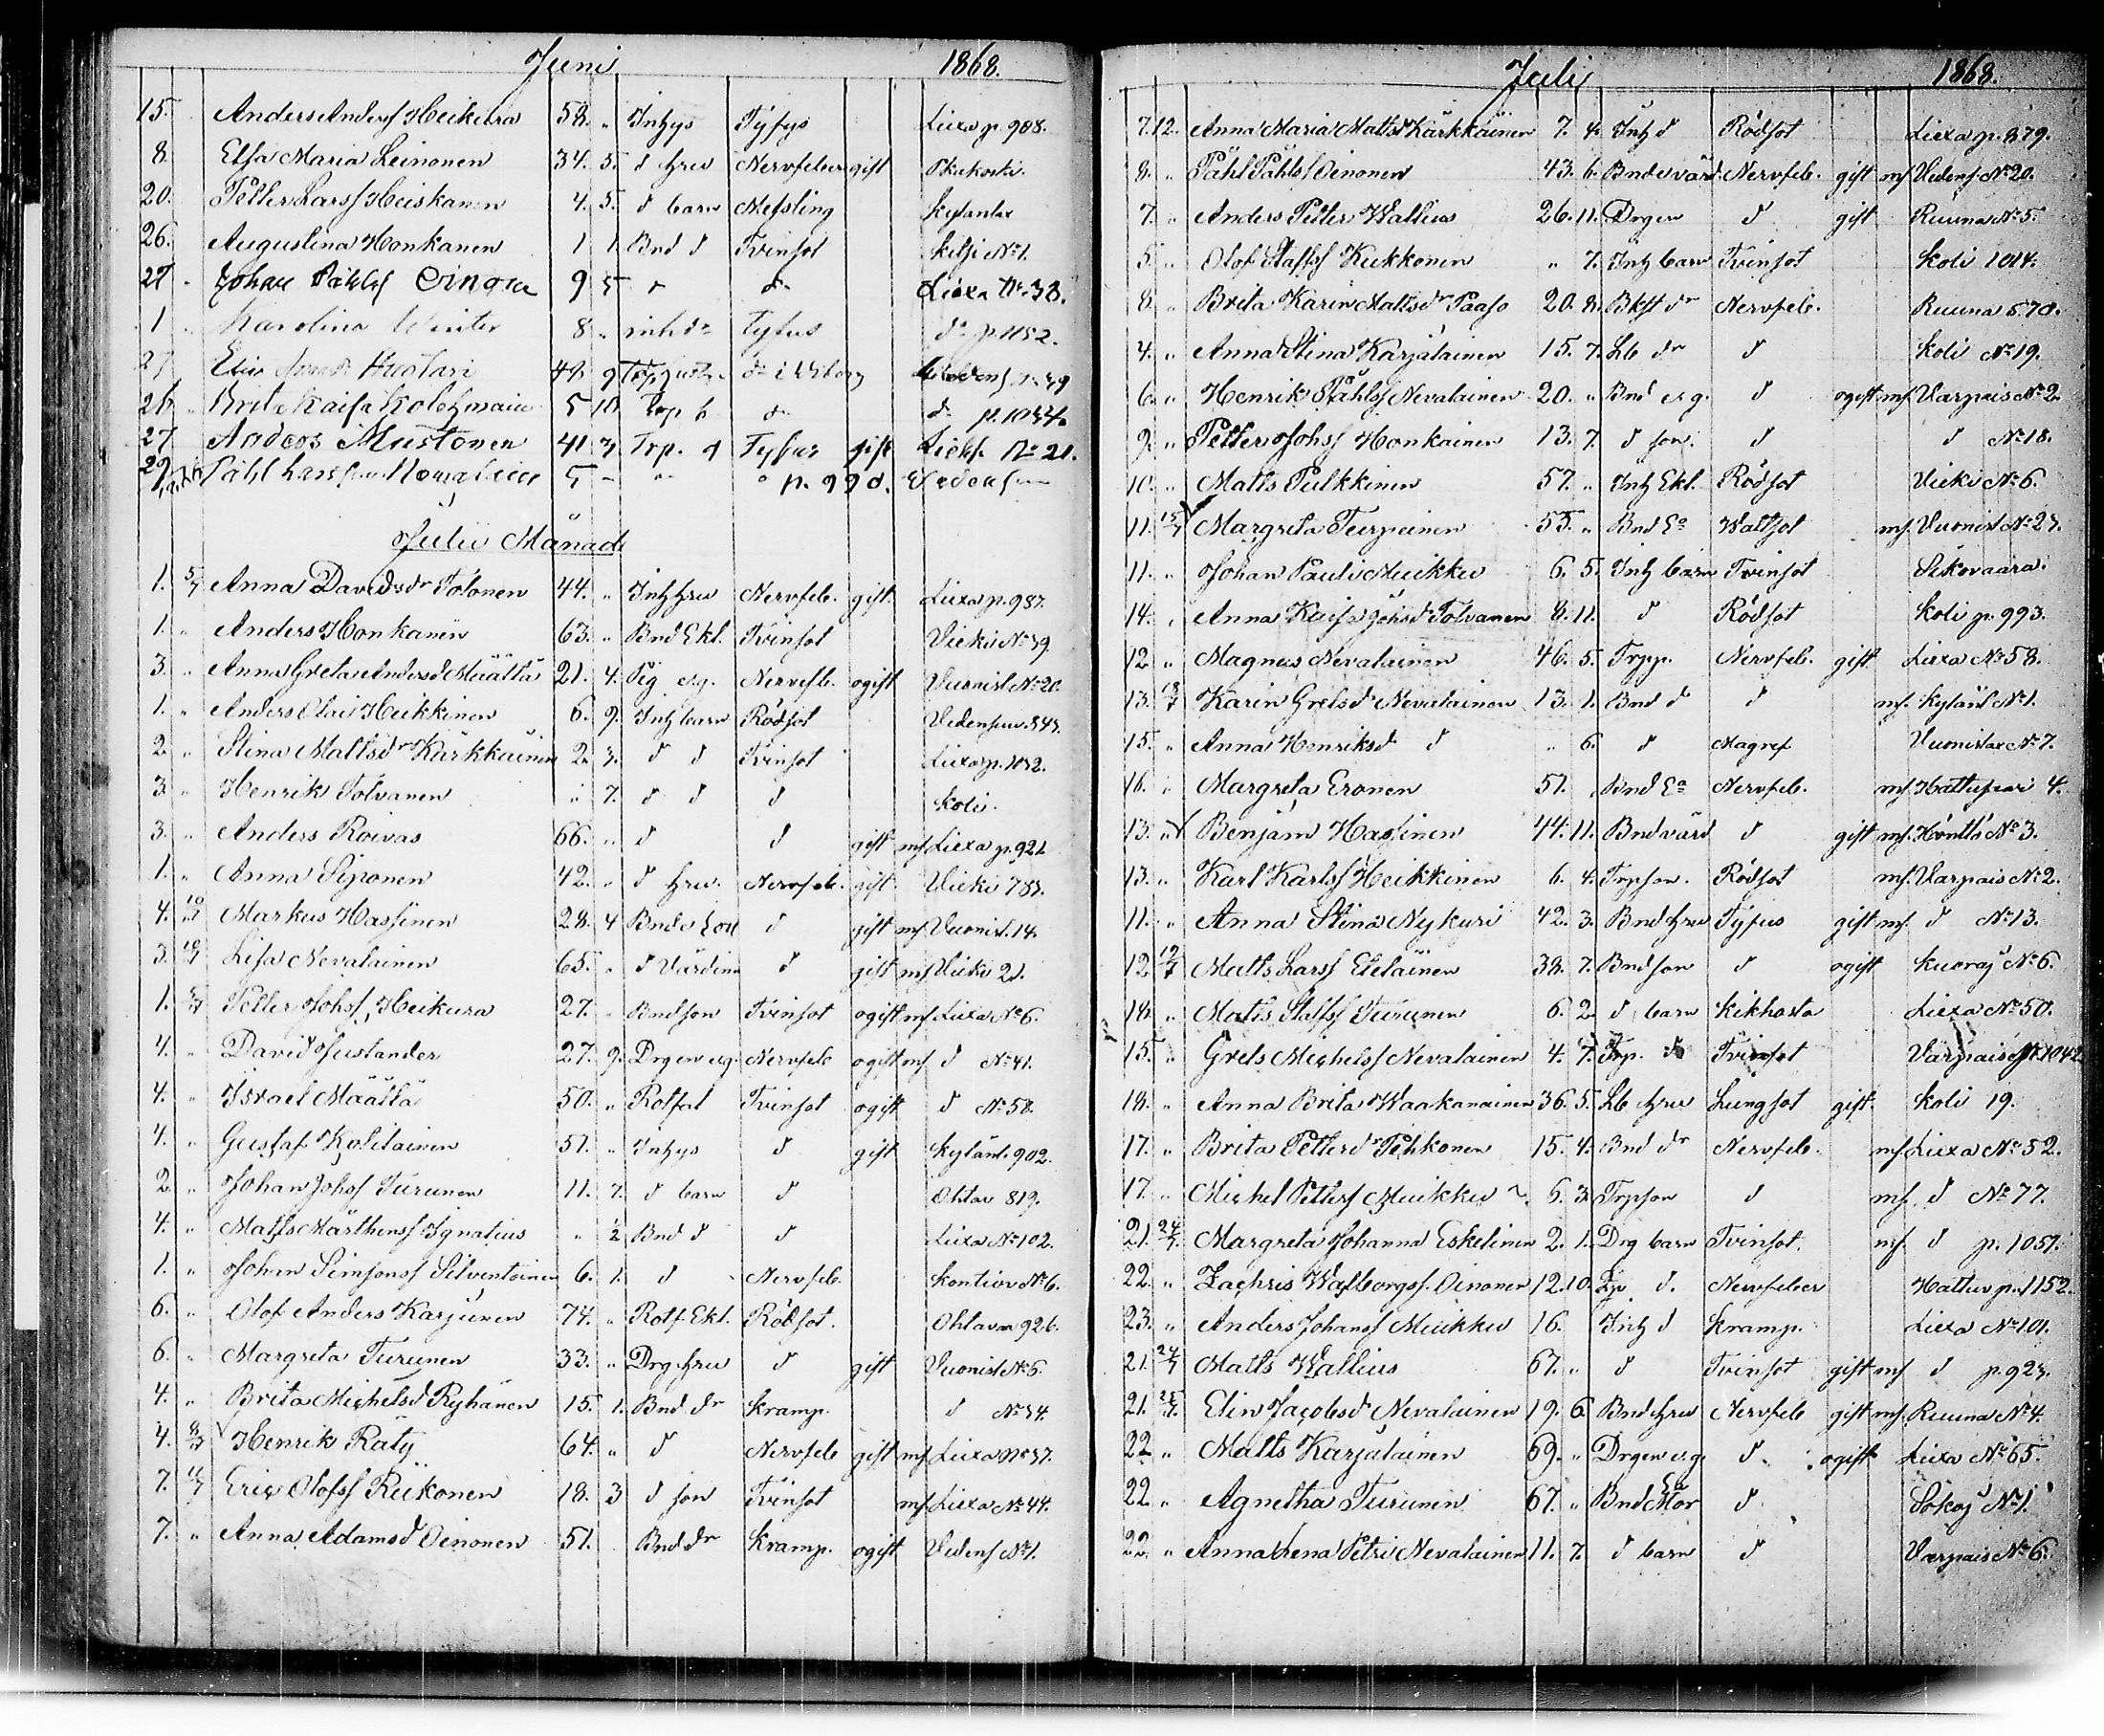 Juni 1868.
15. Anders Anderss Heikura 58. " Inhys Tyfus Lixa p. 908.
8. Elsa Maria Leinonen 34. 5. d hru Nervfeber gift
20. Petter Larss Heiskanen 4. 5. d barn Messling Kylanlax
26. Augustina Honkanen 1 1. Bnd d Tvinsot Kitsi No 1.
27 Johan Påhls Oinonen 9 5 " d Lixa No 38.
1 Karolina Winter 8 " inh dr Tyfus do p. 1152.
27 49 9
26 Brita Kaisa Kolehmainen 5 10 Torp b d d p. 1034.
27 Anders Mustonen 41 3 Torp. d Tyfus gift Lieks. No 21.
29 Påhl Larss 5 - " " p. 990.
Julii Månad
1. 5/7 Anna Davidsdr Tolonen 44. " Inh hru Nervfeb. gift Lixa p. 987.
1. " Anders Honkanen 63. " Bnd Ekl. Tvinsot Vieki No 39
3. " Anna Greta Andersd Määttä 21. 4. Pig e.g. Nervfeb. ogift Vuonisl No 20.
1. " Anders Olai Heikkinen 6. 9. Inh barn Rödsot
2. " Stina Mattsdr Kärkkäinen 2. 3. d d Tvinsot Lixa p. 1032.
3. " Henrik Tolvanen " 7. d d d Koli.
3. " Anders Roivas 66. " d d gift mf Lixa p. 921
1. " Anna Siponen 42. " d hru. Nervfeb. gift Vieki 783.
4. 10/7 Markus Hassinen 28. 4 Bnde d gift mf Vuonisl. 14.
3. 10/7 Lisa Nevalainen 65. " d Värdinna d gift mf Vieki 21.
1. Petter Johss Heikura 27. " Bndson Tvinsot ogift mf Lixa No 6.
4. " David Justander 27. 9. Drgen e.g. Nervfeb ogift mf d No 41.
4. " Israel Määttä 50. " Rotfat Tvinsot ogift d No 58.
4. " Gustaf Kolilainen 51. " Inhys d gift Kylänl. 902.
2. " Johan Johss Turunen 11. 7. d barn d Ohtav 819.
4. " Matts Mårthenss Ignatius " 1/2 Bnd d d Lixa No 102.
1. " Johan Simonss Silventoinen 6. 1. d Nervfeb. Kontiov No 6.
6. " Olof Anders Karjunen 74. " Rotf. Ekl. Rödsot. Ohtava 926.
6. " Margreta Turunen 33. " Drg. hru d gift Vuonisl No 6.
4. " Brita Michelsd Ryhänen 15. 1. Bnd dr Kramp. d No 34.
4. 8/7 Henrik Räty 64. " d Nervfeb gift mf Lixa No 37.
7. 11/7 Eric Olofss Riikonen 18. 3 d son Tvinsot mf Lixa No 44.
7. " Anna Adamsd Oinonen 51. Bnd dr Kramp. ogift Videns No 1.
Juli 1868.
7. 12. Anna Maria Mattsd Kärkkäinen 7. 4. Inh d Rödsot Lixa p. 879.
8. " Påhl Påhlss Oinonen 43. 6. Bndevärd. Nervfeb. gift mf Videns No 20.
7. " Anders Petter Wallius 26. 11. Drgen d gift Ruuna No 5.
5. " Olof Staffss Kukkonen " 7. Inh barn Tvinsot Koli 1014.
8. " Brita Karin Mattsdr Paaso 20. 8. dr Nervfeb. Ruuna 570.
4. " Anna Stina Karjalainen 15. 7. Lb dr d Koli No 19.
6. " Henrik Påhlss Nevalainen 20. " Bnd e.g. d ogift mf Varpais No 2.
9. " Petter Johss Honkainen 13. 7. d son. d d No 18.
10. " Matts Pulkkinen 57. " Inh Ekl. Rödsot Vieki No 6.
11. 15/7 Margreta Turpeinen 55. " Bnd Ea Wattsot mf. Vuonisl No 27.
11. " Johan Pauli Muikku 6. 5. Inh barn Tvinsot Sikovaara.
14. " Anna Kaisa Johsd Tolvanen 8. 11. d Rödsot Koli p. 993.
12 " Magnus Nevalainen 46. 5. Trpp. Nervfeb. gift Lixa No 58.
13. 18/7 Karin Gretsd Nevalainen 13. 1. Bnd d d mf. Kylänl No 1.
15. " Anna Henriksd d " 6. d Magref Vuonislax No 7.
16. " Margreta Eronen 51. Bnd Ea Nervfeb. mf. Hattupari 4.
13. " Benjam Hassinen 44. 11. Bndvärd d gift mf. Höntts No 3.
13. " Karl Karlss Heikkinen 6. 4. Trpson. Rödsot mf. Varpais No 2.
11. " Anna Stina Nykuri 42. 3. Bnd hru Tyfus gift mf. d No 13.
12 19/7 Matts Larss Eteläinen 38. 7. Bndson d ogift Kuoraj No 6.
18. " Matts Staffss Turunen 6. 2. d barn Kikhosta Lixa No 50.
15. " Grels Michelss Nevalainen 4. 7. Trp. do Tvinsot Varpais p. 1042
18. " Anna Brita Waakanainen 36. 5. Lb hru Lungsot gift. Koli 19.
17. " Brita Pettersdr Pehkonen 15. 4. Bnd dr Nervfeb. mf. Lixa No 52.
17. " Michel Petterss Muikku 6. 3. Trpson d mf. d No 77.
21. 24/7. Margreta Johanna Eskelinen 2. 1. Drg barn Tvinsot. mf. d p. 1051.
22. " Zachris Walborgss. Oinonen 12. 10. d. Nervfeber Hattuv p. 1152.
23. " Anders Johanss Muikku 16. Inh d Kramp. Lixa No 101.
21. 24/7 Matts Wallius 67. " d Tvinsot gift mf d p. 923.
21. 25/7. Elin Jacobsd Nevalainen 19. 6 Bnd hru Nervfeb gift mf. Ruuna No 4.
22 " Matts Karjalainen 69. " Drgen e.g. d. ogift Lixa No 65.
22 " Agnetha Turunen 67. " Bnd Mor d Sokoj No 1.
22 " Anna Lena Petri Nevalainen 11. 7. d barn d Varpais No 6.